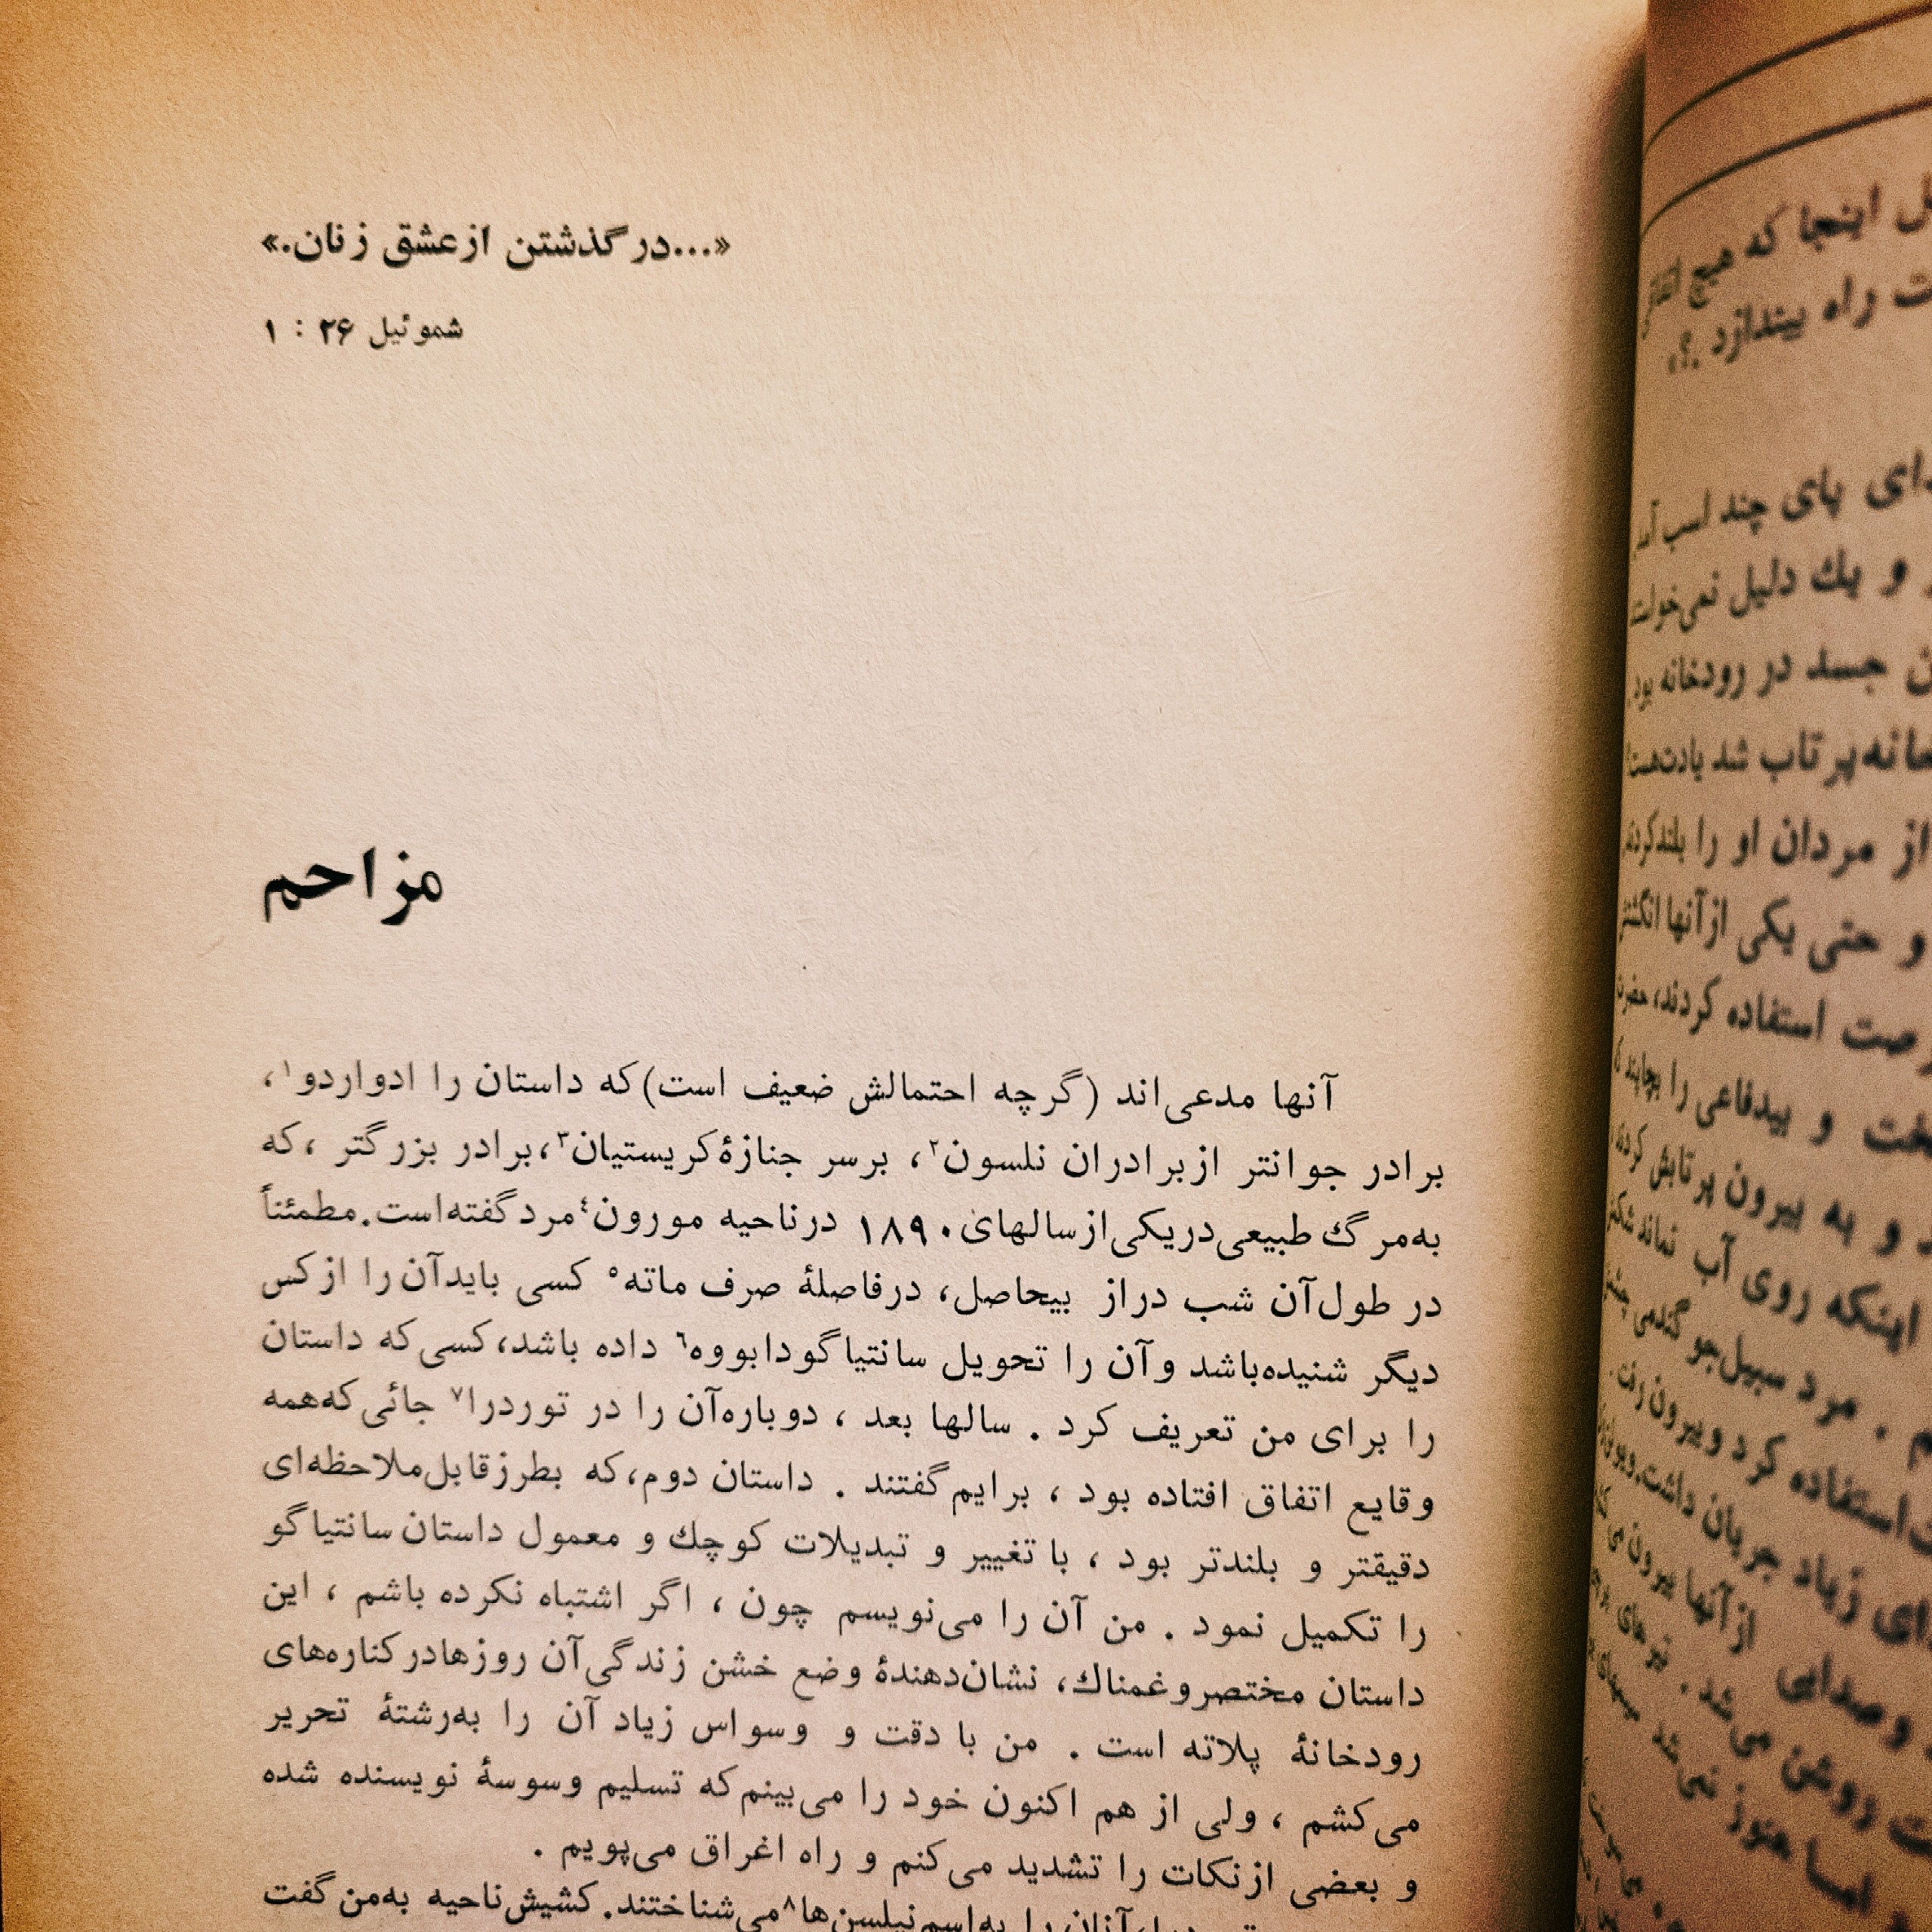 «...درگذشتن از عشق زنان.»
شموئیل ۲۶ : ۱
مزاحم
آنها مدعی‌اند (گرچه احتمالش ضعیف است) که داستان را ادواردو۱،
برادر جوانتر از برادران نلسون۲، برسر جنازهٔ کریستیان۳، برادر بزرگتر ، که
به‌مرگ طبیعی در یکی از سالهای ۱۸۹۰ در ناحیه مورون۴ مرد گفته‌است. مطمئناً
در طول آن شب دراز بیحاصل، در فاصلهٔ صرف ماته۵ کسی باید آن را از کس
دیگر شنیده‌باشد و آن را تحویل سانتیاگو دابووه۶ داده باشد، کسی که داستان
را برای من تعریف کرد . سالها بعد ، دوباره آن را در توردرا۷ جائی که همه
وقایع اتفاق افتاده بود ، برایم گفتند . داستان دوم، که بطرز قابل‌ملاحظه‌ای
دقیقتر و بلندتر بود ، با تغییر و تبدیلات کوچك و معمول داستان سانتیاگو
را تکمیل نمود . من آن را می‌نویسم چون ، اگر اشتباه نکرده باشم ، این
داستان مختصر و غمناك، نشان‌دهندهٔ وضع خشن زندگی آن روزها در کناره‌های
رودخانهٔ پلاته است . من با دقت و وسواس زیاد آن را به‌رشتهٔ تحریر
می‌کشم ، ولی از هم اکنون خود را می‌بینم که تسلیم وسوسهٔ نویسنده شده
و بعضی از نکات را تشدید می‌کنم و راه اغراق می‌پویم .
آنان را به‌اسم نیلسن‌ها۸ می‌شناختند. کشیش ناحیه به‌من گفت
اینجا که هیچ
راه بیندازد .؟،
پای چند اسب آمد
و یك دلیل نمی‌خواست
جسد در رودخانه بود.
پرتاب شد یادت‌هست؟
از مردان او را بلند کردند
و حتی یکی از آنها
استفاده کردند، حضرت
و بیدفاعی را
و به بیرون پرتابش کردند
اینکه روی آب نماند
. مرد سبیل‌جو گندمی
استفاده کرد و بیرون رفت.
زیاد جریان داشت.
وصدایی از آنها بیرون
روشن می‌شد .
اما هنوز نمی‌شد